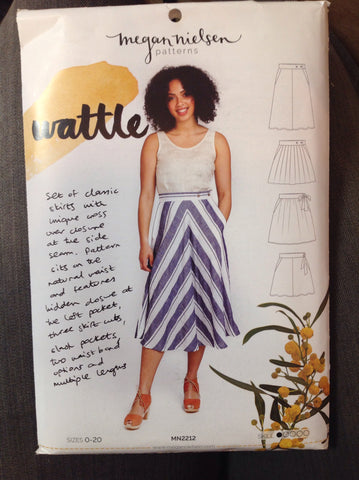 megan nielsen
patterns
wattle
Set of classic
skirts with
unique cross
over closure
at the side
seam. Pattern
sits on the
natural waist
and features
hidden closure at
the left pocket,
three skirt cuts,
slant pockets,
two waistband
options and
multiple lengths
SIZES 0-20
MN2212